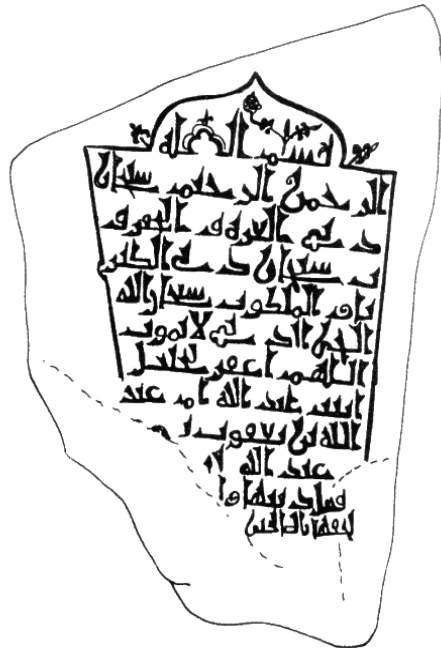 بسم الله
الرحمن الرحيم سبحان
ذي العزة و الجبرو
ت سبحان ذي الكبر
يا و الملكوت سبحان الله
الحي الذي لا يموت
اللهم اغفر
ابنت عبد الله ام عبد
الله بن يعقوب بن
عبد الله